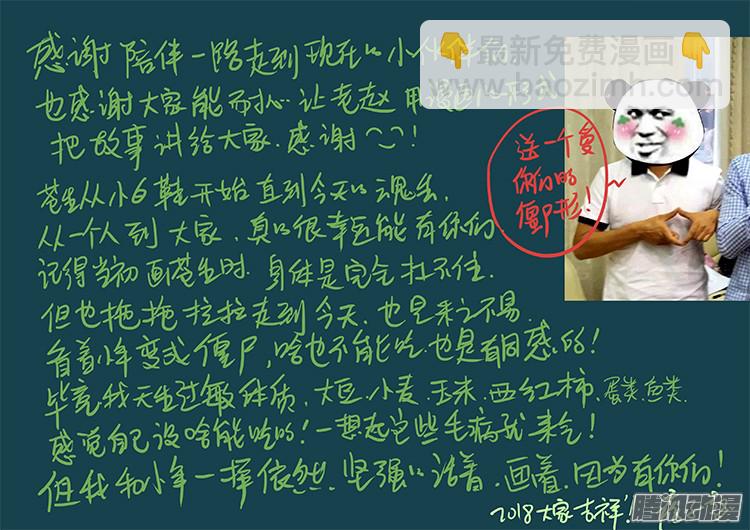 最新免费漫画
www.baozimh.com
感谢陪伴一路走到现在的小伙伴们
也感谢大家能耐心让老赵用漫画的形式
把故事讲给大家.感谢^^!
苍生从小6鞋开始直到今天的魂丢,
从一个人到大家,真的很幸运能有你们
记得当初画苍生时.身体是完全扛不住.
但也拖拖拉拉走到今天.也是来之不易.
看着小年变成僵尸,啥也不能吃.也是有同感的!
毕竟我天生过敏体质,大豆.小麦.玉米.西红柿.蛋类.鱼类.
感觉自己没啥能吃的!一想起这些毛病就来气!
但我和小年一样依然.坚强的活着.画着.因为有你们!
2018大家吉祥!
送一个爱
你们的
僵尸形!
腾讯动漫